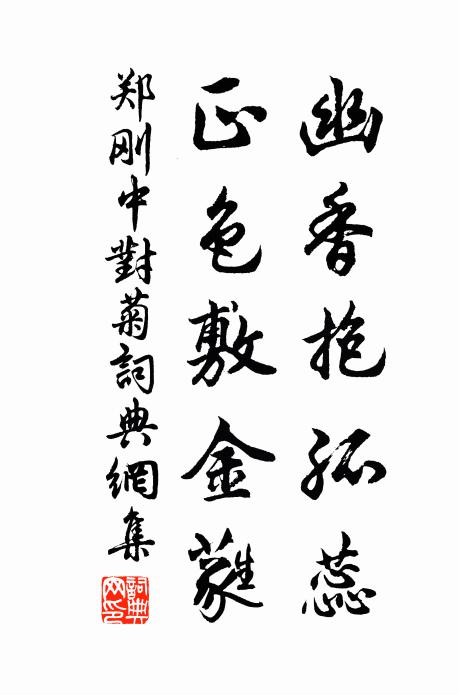 幽香抱孤蕊
正色敷金蕤
郑刚中對菊詞典網集
詞典网印